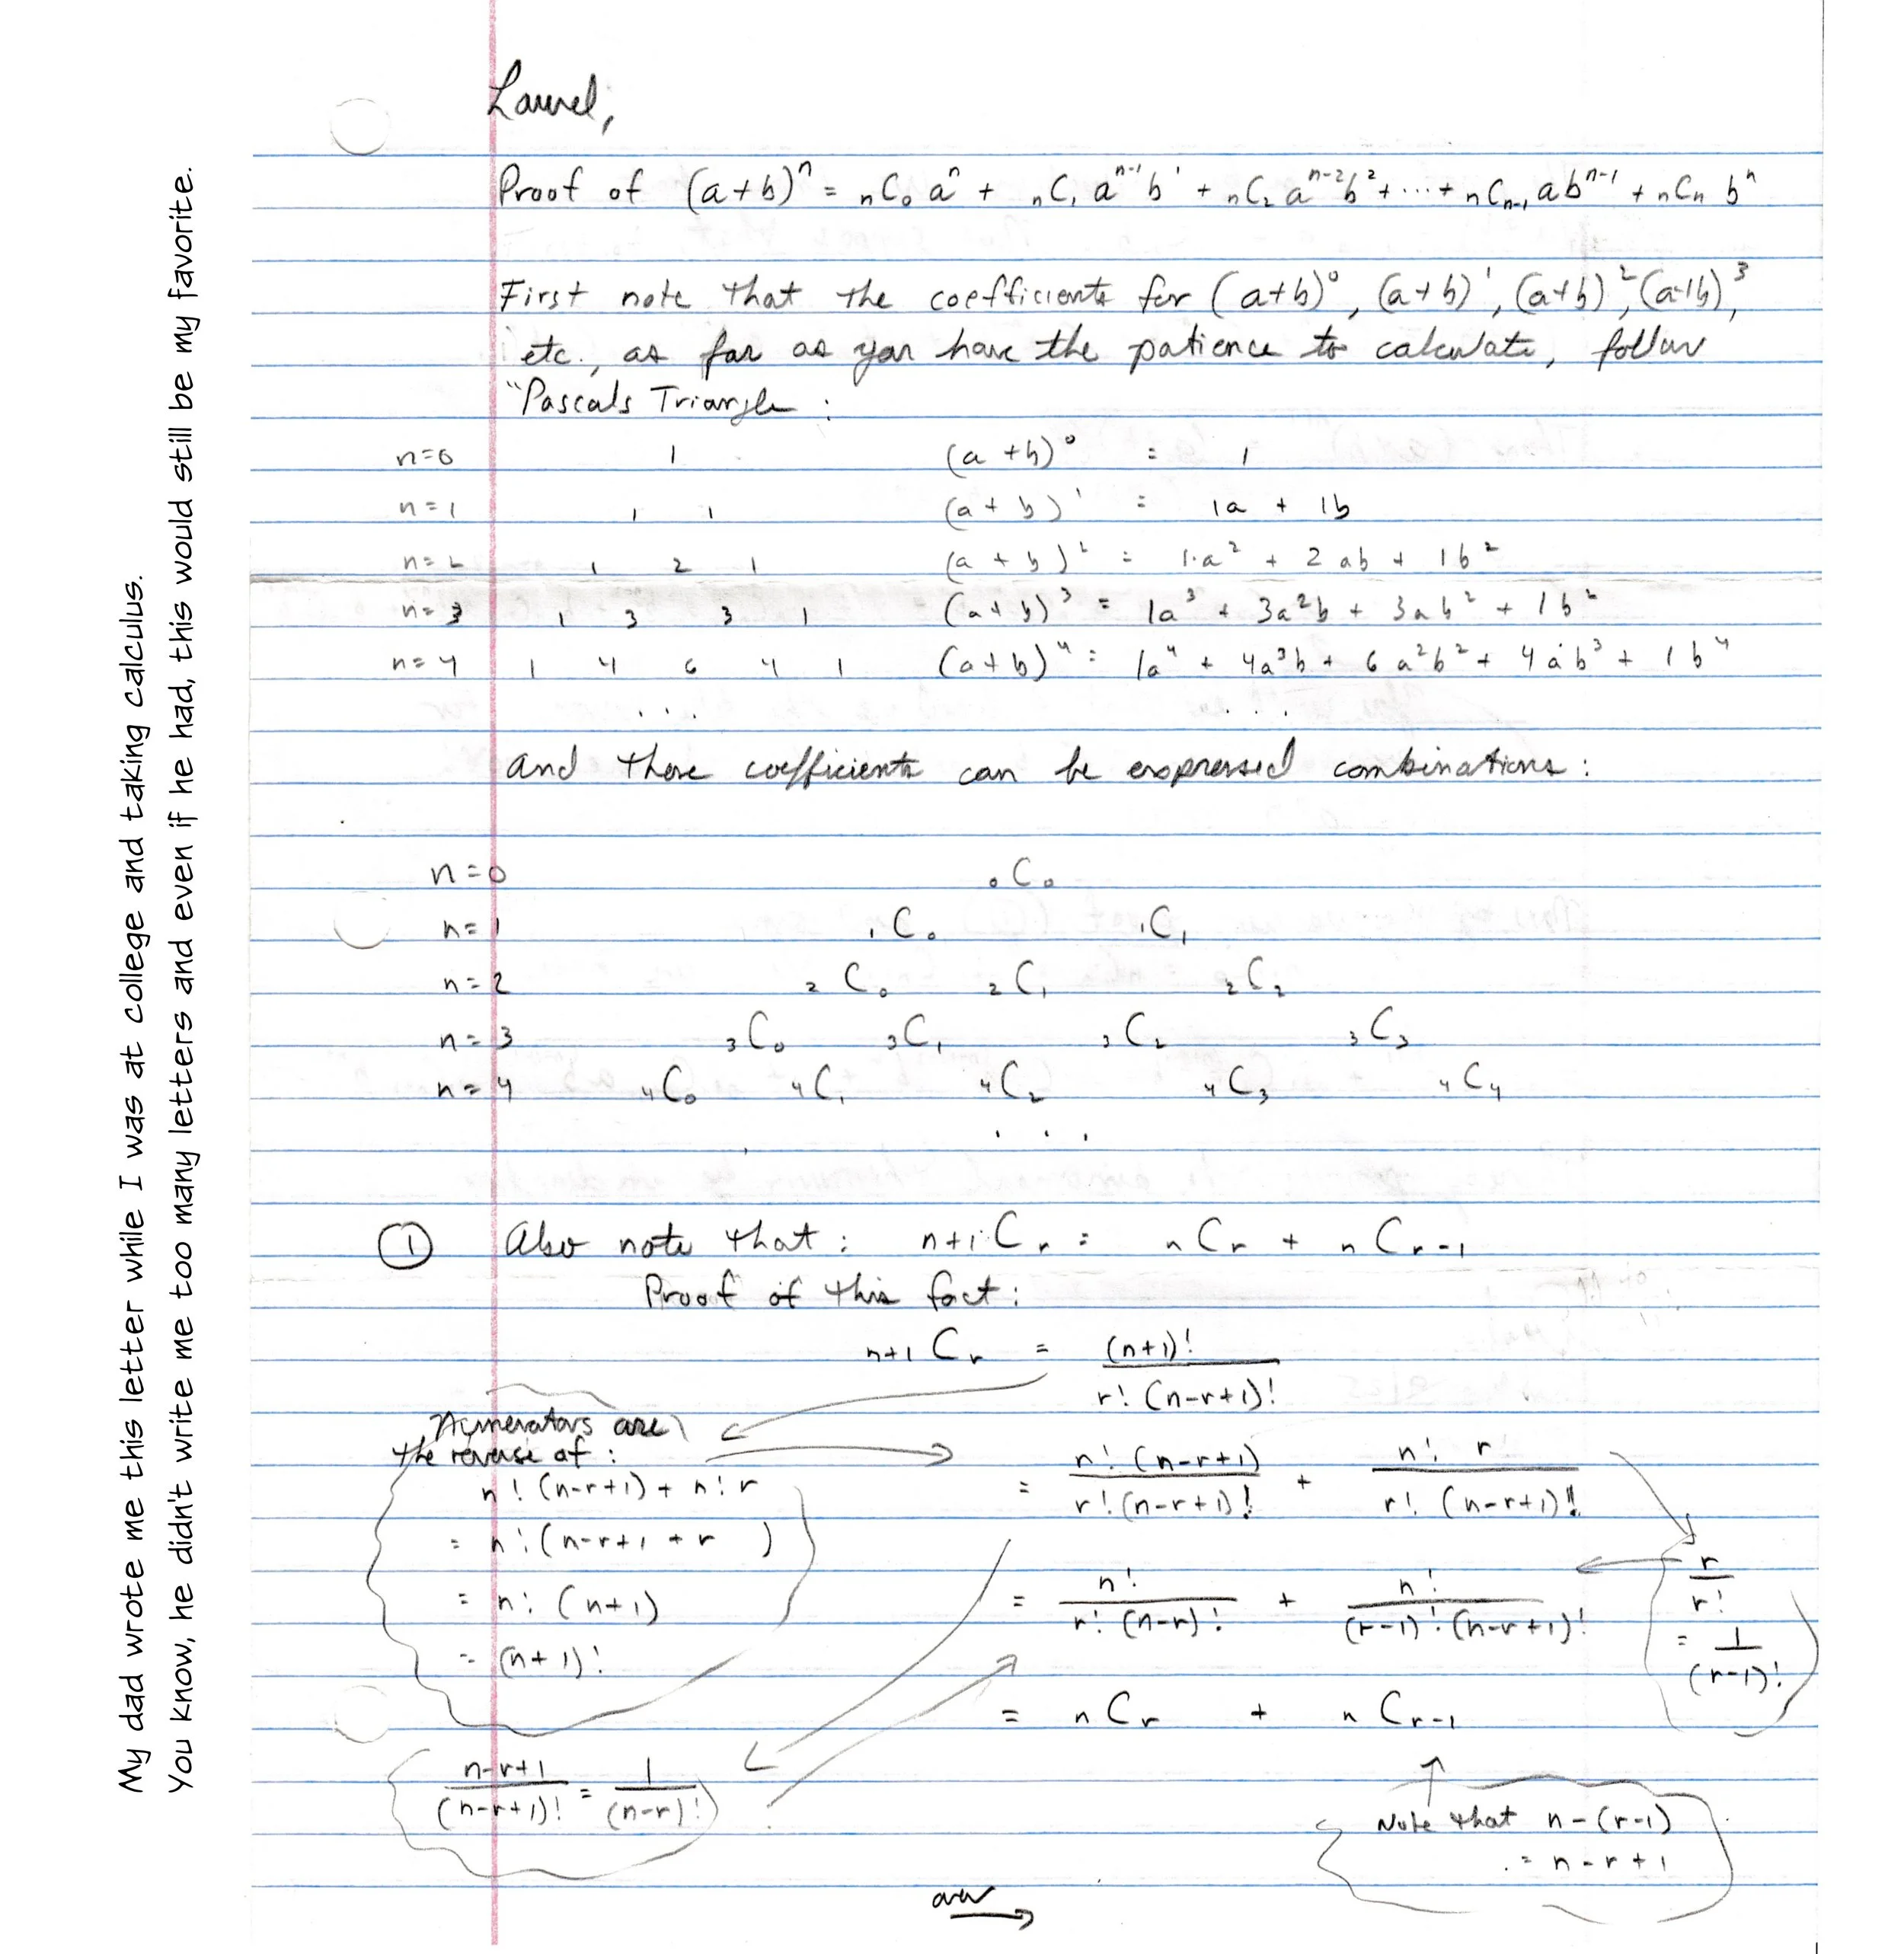 Laurel,
Proof of (a+b)ⁿ = ₙC₀ aⁿ + ₙC₁ aⁿ⁻¹b¹ + ₙC₂ aⁿ⁻²b² + ... + ₙCₙ₋₁ abⁿ⁻¹ + ₙCₙ bⁿ
First note that the coefficients for (a+b)⁰, (a+b)¹, (a+b)², (a+b)³,
etc., as far as you have the patience to calculate, follow
"Pascals Triangle :
n=0 1 (a+b)⁰ = 1
n=1 1 1 (a+b)¹ = 1a + 1b
n=2 1 2 1 (a+b)² = 1·a² + 2ab + 1b²
n=3 1 3 3 1 (a+b)³ = 1a³ + 3a²b + 3ab² + 1b²
n=4 1 4 6 4 1 (a+b)⁴ = 1a⁴ + 4a³b + 6a²b² + 4ab³ + 1b⁴
... ...
and these coefficients can be expressed combinations:
n=0 ₀C₀
n=1 ₁C₀ ₁C₁
n=2 ₂C₀ ₂C₁ ₂C₂
n=3 ₃C₀ ₃C₁ ₃C₂ ₃C₃
n=4 ₄C₀ ₄C₁ ₄C₂ ₄C₃ ₄C₄
...
① Also note that: ₙ₊₁Cᵣ = ₙCᵣ + ₙCᵣ₋₁
Proof of this fact:
ₙ₊₁Cᵣ = (n+1)! / r! (n-r+1)!
Numerators are
the reverse of:
n! (n-r+1) + n! r
= n! (n-r+1 + r )
= n! (n+1)
= (n+1)!
= n! (n-r+1) / r! (n-r+1)! + n! r / r! (n-r+1)!!
r / r!
= 1 / (r-1)!
= n! / r! (n-r)! + n! / (r-1)! (n-r+1)!
= ₙCᵣ + ₙCᵣ₋₁
n-r+1 / (n-r+1)! = 1 / (n-r)!
Note that n-(r-1)
= n-r+1
over
My dad wrote me this letter while I was at college and taking calculus.
You know, he didn't write me too many letters and even if he had, this would still be my favorite.